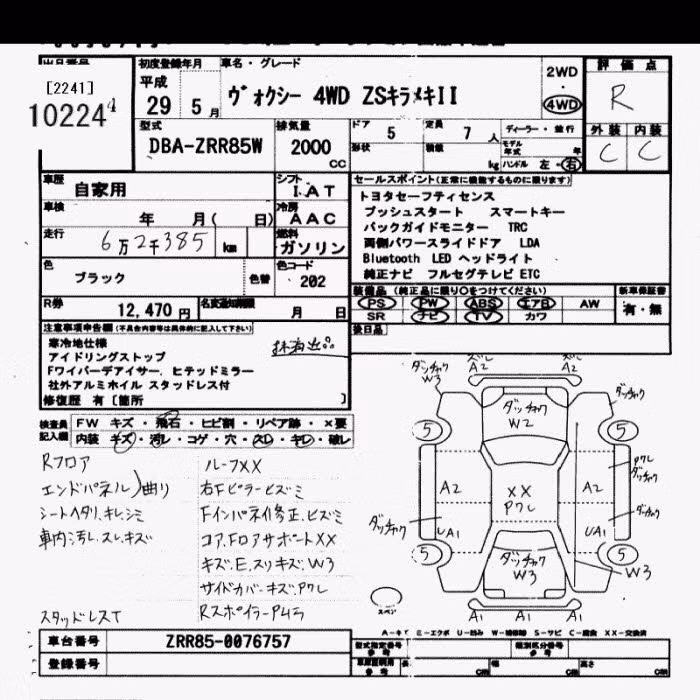 出品番号
[2241]
10224
初度登録年月
平成
29 5 月
車名・グレード
ヴォクシー 4WD ZSキラメキII
2WD
4WD
評価点
R
外装 内装
C C
型式
DBA-ZRR85W
排気量
2000
CC
ドア
5
定員
7 人
形状
積載
kg
ディーラー・並行
モデル年式 年
ハンドル 左・右
車歴
自家用
シフト
I.AT
車検
年 月( 日)
冷房
AAC
走行
6万2千385 km
燃料
ガソリン
色
ブラック
色替
色コード
202
R券
12,470 円
月 日
セールスポイント(正常に機能するものに限ります)
トヨタセーフティセンス
プッシュスタート スマートキー
バックガイドモニター TRC
両側パワースライドドア LDA
Bluetooth LED ヘッドライト
純正ナビ フルセグテレビ ETC
装備品 (純正品に限り○をつけてください)
PS PW ABS エアB AW
SR ナビ TV カワ
新車保証書
有・無
後日品
注意事項申告欄(不具合内容等は具体的に記入して下さい)
寒冷地仕様
アイドリングストップ
Fワイパーデアイサー、ヒテッドミラー
社外アルミホイル スタッドレス付
修復歴 有[箇所 ]
検査員記入欄
FW キズ・飛石・ヒビ割・リペア跡・×要
内装 キズ・汚レ・コゲ・穴・スレ・キレ・破レ
Rフロア
エンドパネル)曲り
シートヘタリ、キレ、シミ
車内汚レ、スレ、キズ
スタッドレスT
ルーフXX
右Fピラーヒズミ
Fインパネイ修正、ヒズミ
コア、FロアサポートXX
キズ、E、スリキズ、W3
サイドカバーキズ、Pワレ
Rスポイラー
ダッチャク
W3
A2
A2
ダッチャク
ダッチャク
W2
5
5
Pワレ
ダッチャク
A2
XX
Pワレ
A2
ダッチャク
ダッチャク
UA1
UA1
5
ダッチャク
W3
5
W3
スペア
A1
A1
車台番号
ZRR85-0076757
登録番号
型式指定番号
参考
類別区分番号
参考
長 cm
幅 cm
高さ cm